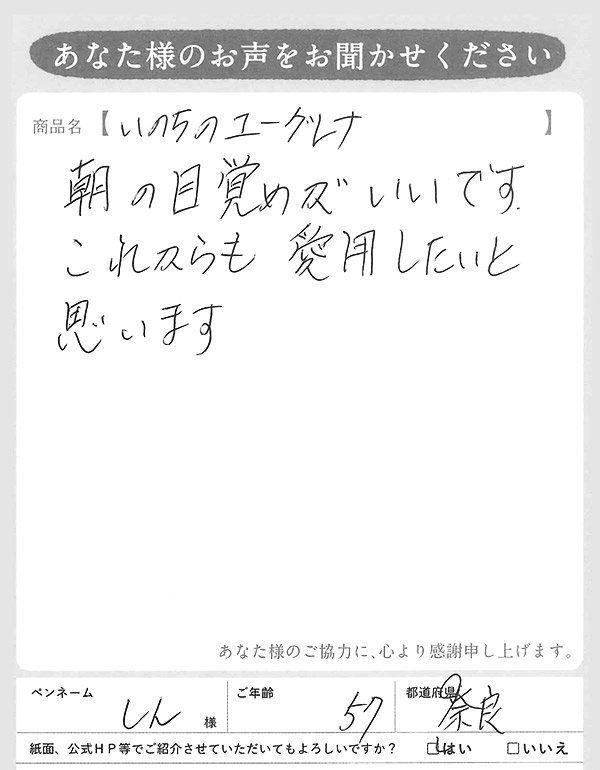 あなた様のお声をお聞かせください
商品名【いのちのユーグレナ】
朝の目覚めがいいです
これからも愛用したいと
思います
あなた様のご協力に、心より感謝申し上げます。
ペンネーム しん 様 ご年齢 57 都道府県 奈良
紙面、公式HP等でご紹介させていただいてもよろしいですか？ □はい □いいえ